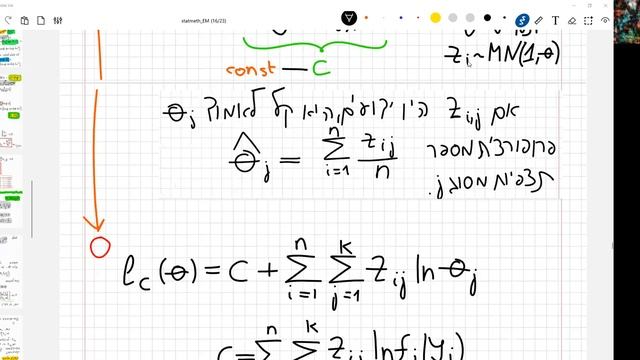 statmeth_EM (16/23)
const — C
z_i ~ MN(1, θ)
אם z_ij היו ידועים, היה קל לאמוד θ_j
θ̂_j = Σ_{i=1}^{n} z_ij / n
פרופורציית מספר
תצפיות מסוג j.
ℓ_c(θ) = C + Σ_{i=1}^{n} Σ_{j=1}^{k} z_ij ln θ_j
C = Σ^n Σ^k z_ij ln f_j(y_i)